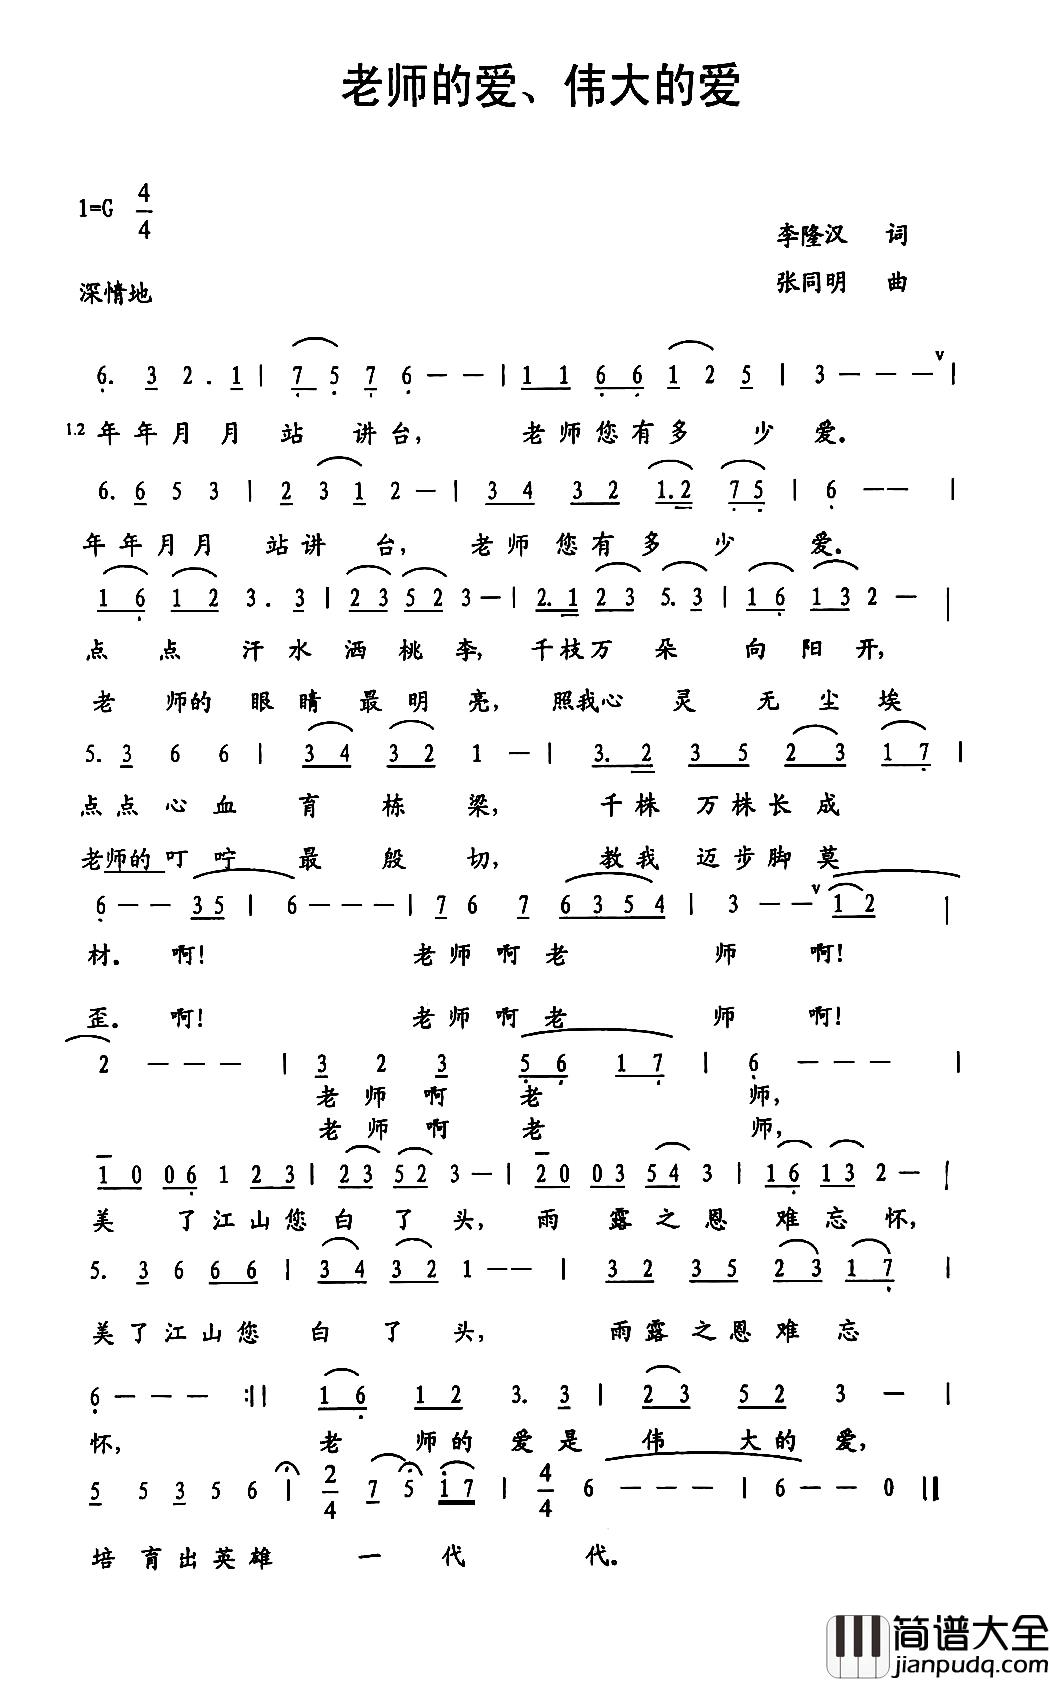 老师的爱、伟大的爱
1=G 4/4
李隆汉 词
深情地
张同明 曲
6. 3 2 . 1 | 7 5 7 6 — — | 1 1 6 6 1 2 5 | 3 — — — V |
1.2 年年月月 站 讲台, 老师您有多 少 爱。
6. 6 5 3 | 2 3 1 2 — | 3 4 3 2 1.2 7 5 | 6 — — |
年年月月 站讲 台, 老师 您有多 少 爱。
1 6 1 2 3 . 3 | 2 3 5 2 3 — | 2.1 2 3 5. 3 | 1 6 1 3 2 — |
点 点 汗水洒桃李, 千枝万 朵 向 阳开,
老 师的 眼 睛 最 明 亮, 照我心 灵 无 尘 埃
5. 3 6 6 | 3 4 3 2 1 — | 3. 2 3 5 2 3 1 7 |
点点心血 育 栋 梁, 千株 万株长成
老师的叮咛 最 殷 切, 教我 迈步脚莫
6 — — 3 5 | 6 — — — | 7 6 7 6 3 5 4 | 3 — — V 1 2 |
材。 啊! 老师啊老 师 啊!
歪。 啊! 老师啊老 师 啊!
2 — — — | 3 2 3 5 6 1 7 | 6 — — — |
老师啊 老 师,
老师啊 老 师,
1 0 0 6 1 2 3 | 2 3 5 2 3 — | 2 0 0 3 5 4 3 | 1 6 1 3 2 — |
美 了江山您白了头, 雨 露之恩 难忘怀,
5. 3 6 6 6 | 3 4 3 2 1 — — | 3 2 3 5 2 3 1 7 |
美了江山您 白 了 头, 雨露之恩难 忘
6 — — — :|| 1 6 1 2 3. 3 | 2 3 5 2 3 — |
怀, 老 师的爱是 伟 大的爱,
5 5 3 5 6 | 2/4 7 5 1 7 | 4/4 6 — — — | — — 0 ||
培育出英雄 一 代 代。
简谱大全
jianpudq.com